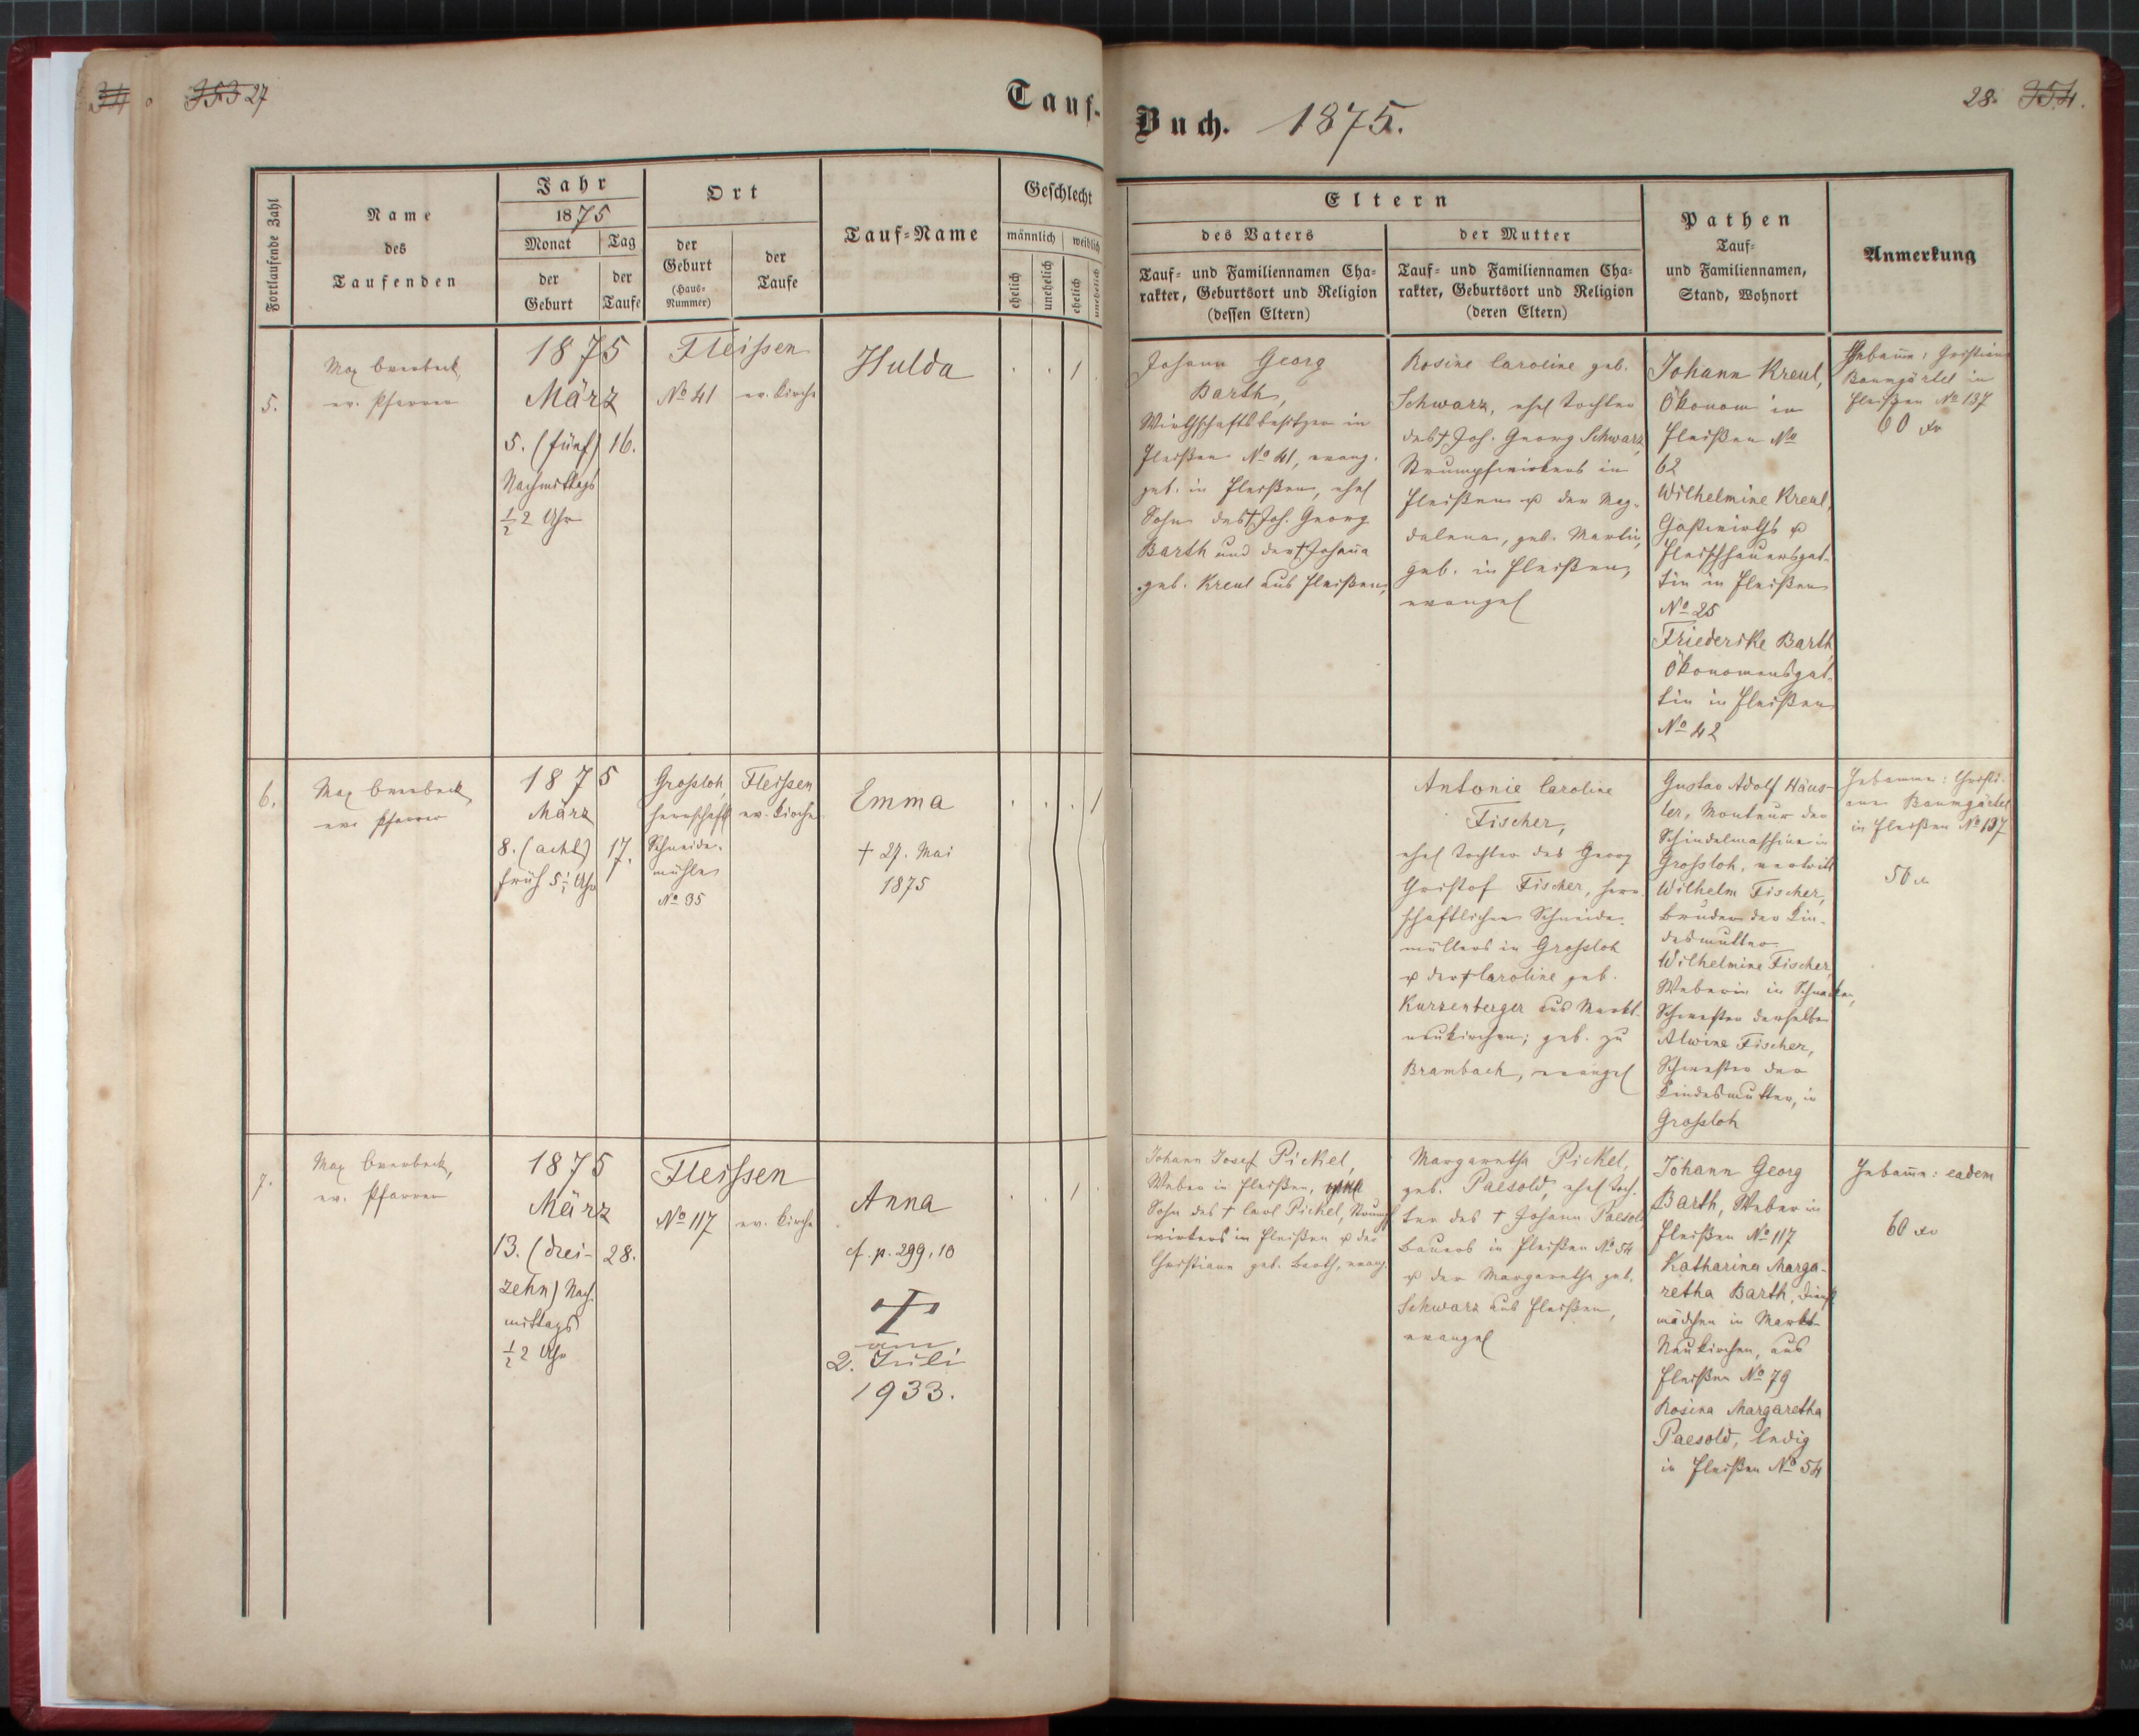 27
Tauf-
Fortlaufende Zahl
Name
des
Taufenden
Jahr
1875
Monat
Tag
der
Geburt
der
Taufe
Ort
der
Geburt
(Haus-
Nummer)
der
Taufe
Tauf-Name
Geschlecht
männlich
weiblich
ehelich
unehelich
ehelich
unehelich
5.
Max Overbeck,
ev. Pfarrer
1875
März
5. (fünf) 16.
Nachmittags
½ 2 Uhr
Fleissen
No 41
ev. Kirche
Hulda
1
6.
Max Overbeck,
ev. Pfarrer
1875
März
8. (acht) 17.
früh 5½ Uhr
Grossloh,
herrschaftl
Schneide-
mühle
No 35
Fleissen
ev. Kirche
Emma
† 27. Mai
1875
1
7.
Max Overbeck,
ev. Pfarrer
1875
März
13. (drei- 28.
zehn) Nach
mittags
½ 2 Uhr
Fleissen
No 117
ev. Kirche
Anna
cf. p. 299, 10
†
am
2. Juli
1933.
1
28.
Buch. 1875.
Eltern
des Vaters
Tauf- und Familiennamen Cha-
rakter, Geburtsort und Religion
(dessen Eltern)
der Mutter
Tauf- und Familiennamen Cha-
rakter, Geburtsort und Religion
(deren Eltern)
Pathen
Tauf-
und Familiennamen,
Stand, Wohnort
Anmerkung
Johann Georg
Barth,
Wirthschaftsbesitzer in
Fleißen No 41, evang.
geb. in Fleißen, ehel
Sohn des † Joh. Georg
Barth und der † Johanna
geb. Kreul aus Fleißen,
Rosine Caroline geb.
Schwarz, ehel Tochter
des † Joh. Georg Schwarz,
Strumpfwirkers in
Fleißen & der Mag-
dalena, geb. Martin,
geb. in Fleißen,
evangel
Johann Kreul,
Ökonom in
Fleißen No
62
Wilhelmine Kreul,
Gastwirths &
Fleischhauersgat-
tin in Fleißen
No 25
Friederike Barth
Ökonomensgat-
tin in Fleißen
No 42
Hebame: Christiane
Baumgärtel in
Fleißen No 137
60 xr
Antonie Caroline
Fischer,
ehel Tochter des Georg
Christof Fischer, herr-
schaftlichen Schneide-
müllers in Grossloh
& der † Caroline geb.
Kurzenberger aus Markt-
neukirchen; geb. zu
Brambach, evangel
Gustav Adolf Häus-
ler, Monteur der
Schindelmaschine in
Grossloh,
Wilhelm Fischer,
Bruder der Kin-
desmutter
Wilhelmine Fischer,
Weberin in Schnecken,
Schwester derselben
Alwine Fischer,
Schwester der
Kindesmutter, in
Grossloh
Hebamme: Christi-
ane Baumgärtel
in Fleißen No 137
50 xr
Johann Josef Pickel,
Weber in Fleißen,
Sohn des † Carl Pickel, Strumpf
wirkers in Fleißen & der
Christiane geb. Barth, evang.
Margaretha Pickel,
geb. Paesold, ehel Toch-
ter des † Johann Paesold
Bauers in Fleißen No 54
& der Margaretha geb.
Schwarz aus Fleißen,
evangel
Johann Georg
Barth, Weber in
Fleißen No 117
Katharina Marga-
retha Barth, Dienst
mädchen in Markt-
Neukirchen, aus
Fleißen No 79
Rosina Margaretha
Paesold, ledig
in Fleißen No 54
Hebame: eadem
60 xr